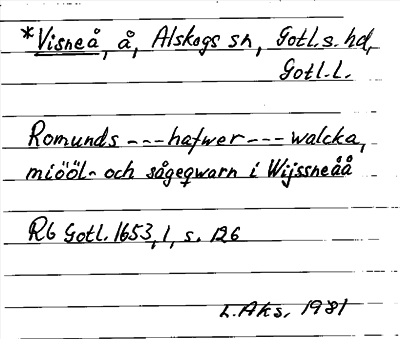 *Visneå, å, Alskogs sn, Gotl.s. hd,
Gotl. L.
Romunds --- hafwer --- walcka,
miööl- och sågeqwarn i Wijssneåå
Rb Gotl. 1653, 1, s. 126
L. Aks. 1981